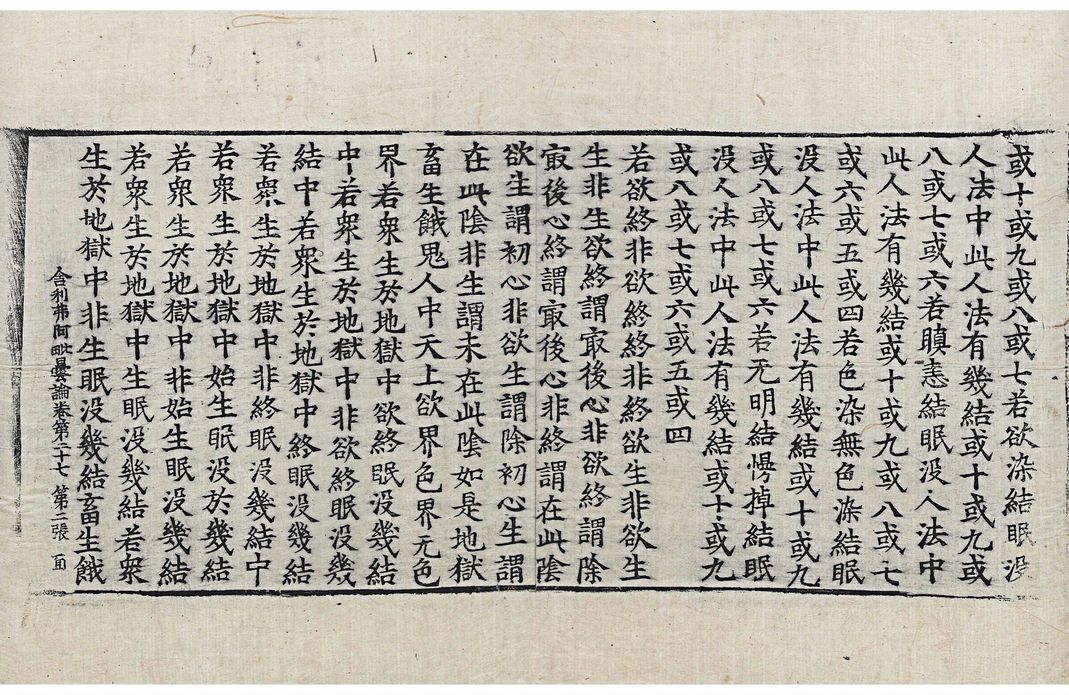 或十或九或八或七若欲染結眠没
人法中此人法有幾結或十或九或
八或七或六若瞋恚結眠没人法中
此人法有幾結或十或九或八或七
或六或五或四若色染無色染結眠
没人法中此人法有幾結或十或九
或八或七或六若无明結慢掉結眠
没人法中此人法有幾結或十或九
或八或七或六或五或四
若欲終非欲終終非終欲生非欲生
生非生欲終謂㝡後心非欲終謂除
㝡後心終謂㝡後心非終謂在此陰
欲生謂初心非欲生謂除初心生謂
在此陰非生謂未在此陰如是地獄
畜生餓鬼人中天上欲界色界无色
界若衆生於地獄中欲終眠没幾結
中若衆生於地獄中非欲終眠没幾
結中若衆生於地獄中終眠没幾結
若衆生於地獄中非終眠没幾結中
若衆生於地獄中始生眠没於幾結
若衆生於地獄中非始生眠没幾結
若衆生於地獄中生眠没幾結若衆
生於地獄中非生眠没幾結畜生餓
舍利弗阿毗曇論卷第二十七 第二張 面